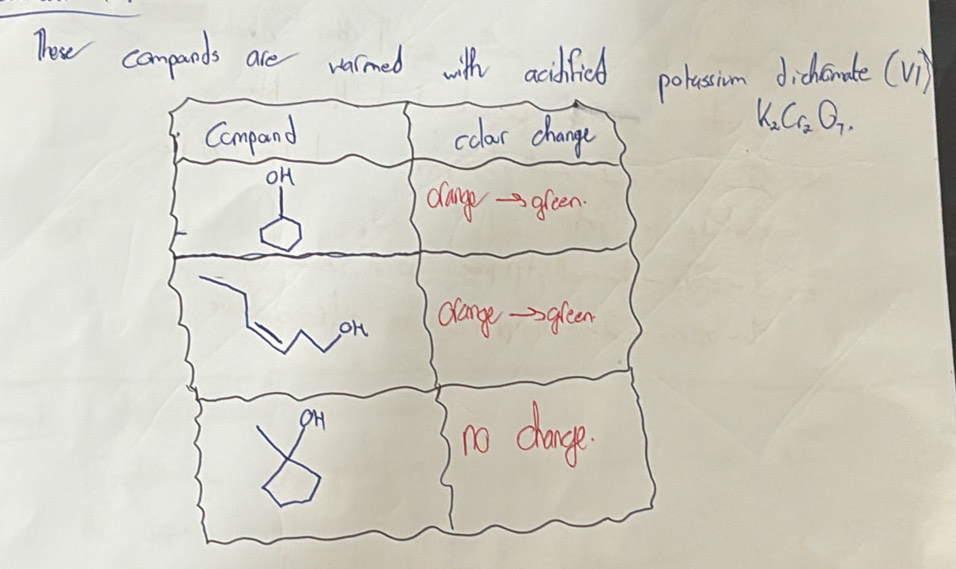 These compands are warmed with acidified potassium dichromate (VI)
K₂Cr₂O₇.
Compand colour change
OH
orange → green.
OH
orange → green.
OH
no change.